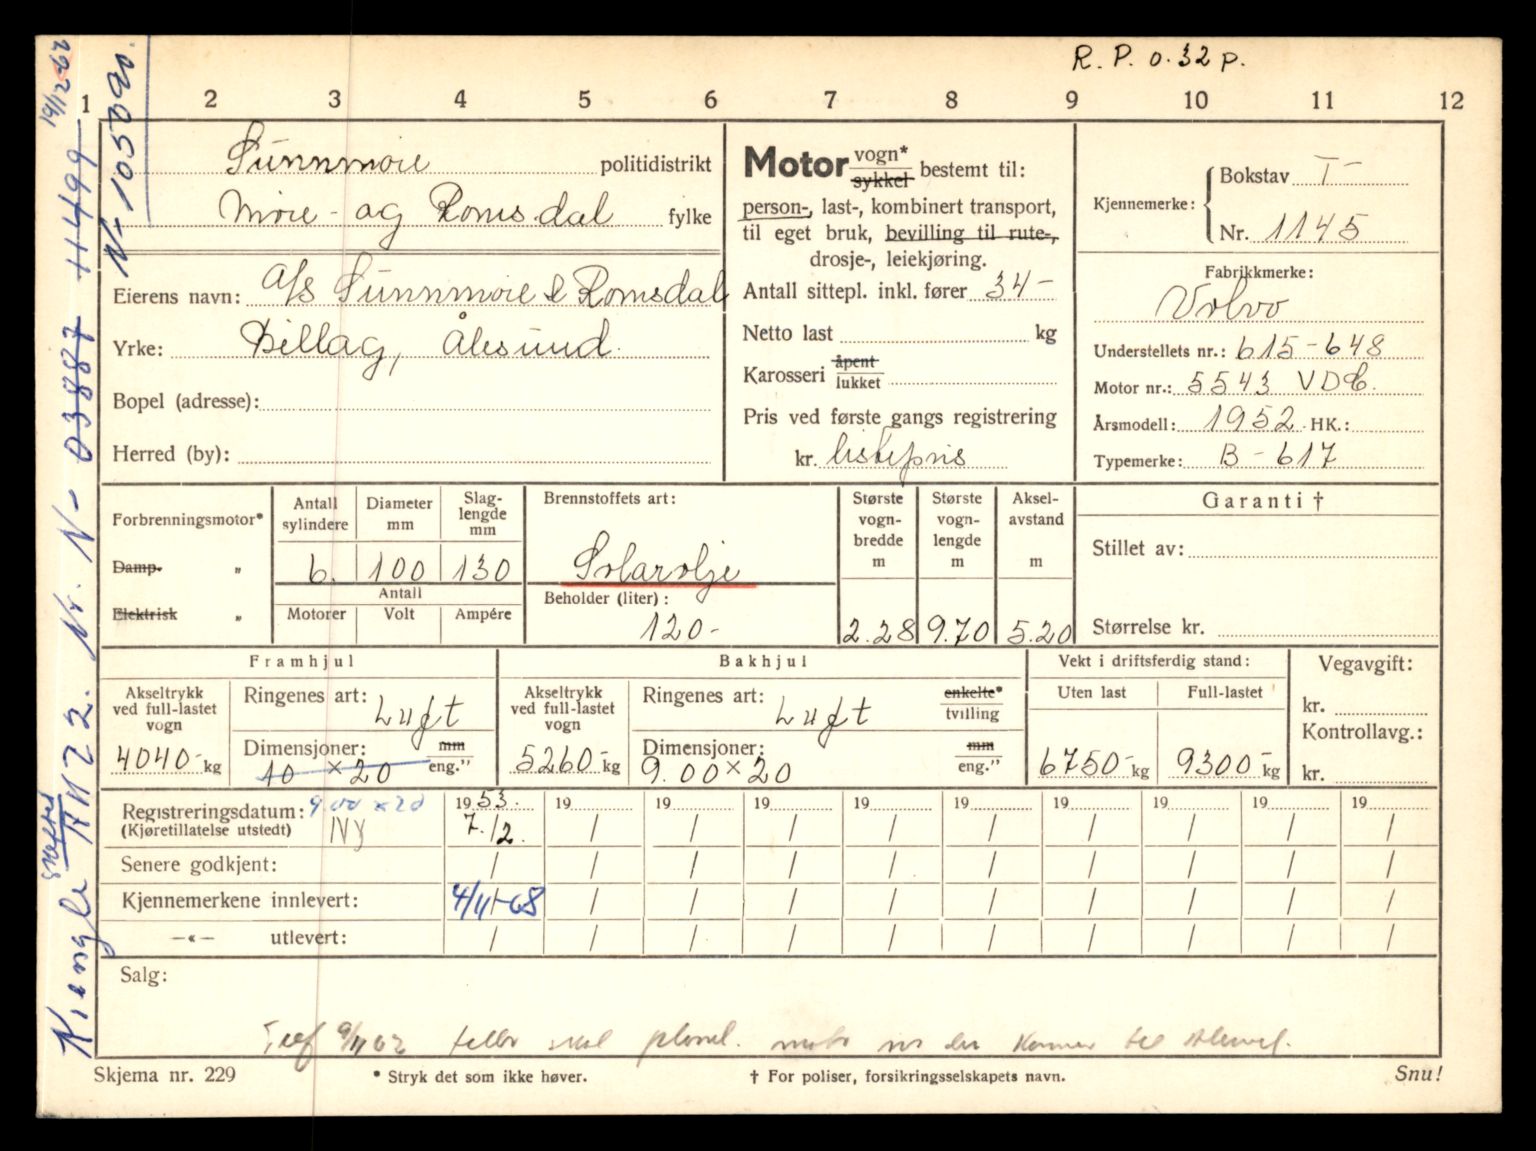 R. P. 0.32 p.
1 2 3 4 5 6 7 8 9 10 11 12
Sunnmøre politidistrikt
Møre- og Romsdal fylke
Eierens navn: A/S Sunnmøre & Romsdal
Yrke: Billag, Ålesund.
Bopel (adresse):
Herred (by):
Motor vogn* sykkel bestemt til:
person-, last-, kombinert transport,
til eget bruk, bevilling til rute-,
drosje-, leiekjøring.
Antall sittepl. inkl. fører 34-
Netto last kg
Karosseri åpent lukket
Pris ved første gangs registrering
kr. listepris
Kjennemerke: Bokstav T-
Nr. 1145
Fabrikkmerke:
Volvo
Understellets nr.: 615-648
Motor nr.: 5543 VDC.
Årsmodell: 1952. HK.:
Typemerke: B-617
Forbrenningsmotor*
Damp- „
Elektrisk „
Antall sylindere Diameter mm Slaglengde mm
6. 100 130
Antall
Motorer Volt Ampére
Brennstoffets art:
Solarolje
Beholder (liter):
120-
Største vognbredde m Største vognlengde m Akselavstand m
2.28 9.70 5.20
Garanti †
Stillet av:
Størrelse kr.
Framhjul
Akseltrykk ved full-lastet vogn
4040- kg
Ringenes art: Luft
Dimensjoner: mm eng."
10 x 20
Bakhjul
Akseltrykk ved full-lastet vogn
5260- kg
Ringenes art: Luft enkelte* tvilling
Dimensjoner: mm eng."
9.00 x 20
Vekt i driftsferdig stand:
Uten last Full-lastet
6750- kg 9300- kg
Vegavgift:
kr.
Kontrollavg.:
kr.
Registreringsdatum: 9.00 x 20 1953. 19 19 19 19 19 19 19 19 19
(Kjøretillatelse utstedt) Ny 7./2. / / / / / / / / /
Senere godkjent: / / / / / / / / / /
Kjennemerkene innlevert: 4/11-68 / / / / / / / / /
—«— utlevert: / / / / / / / / / /
Salg:
9/11 62 skal
Skjema nr. 229 * Stryk det som ikke høver. † For poliser, forsikringsselskapets navn. Snu!
Nr. N- 03887 11499 19/12-62
N-105090.